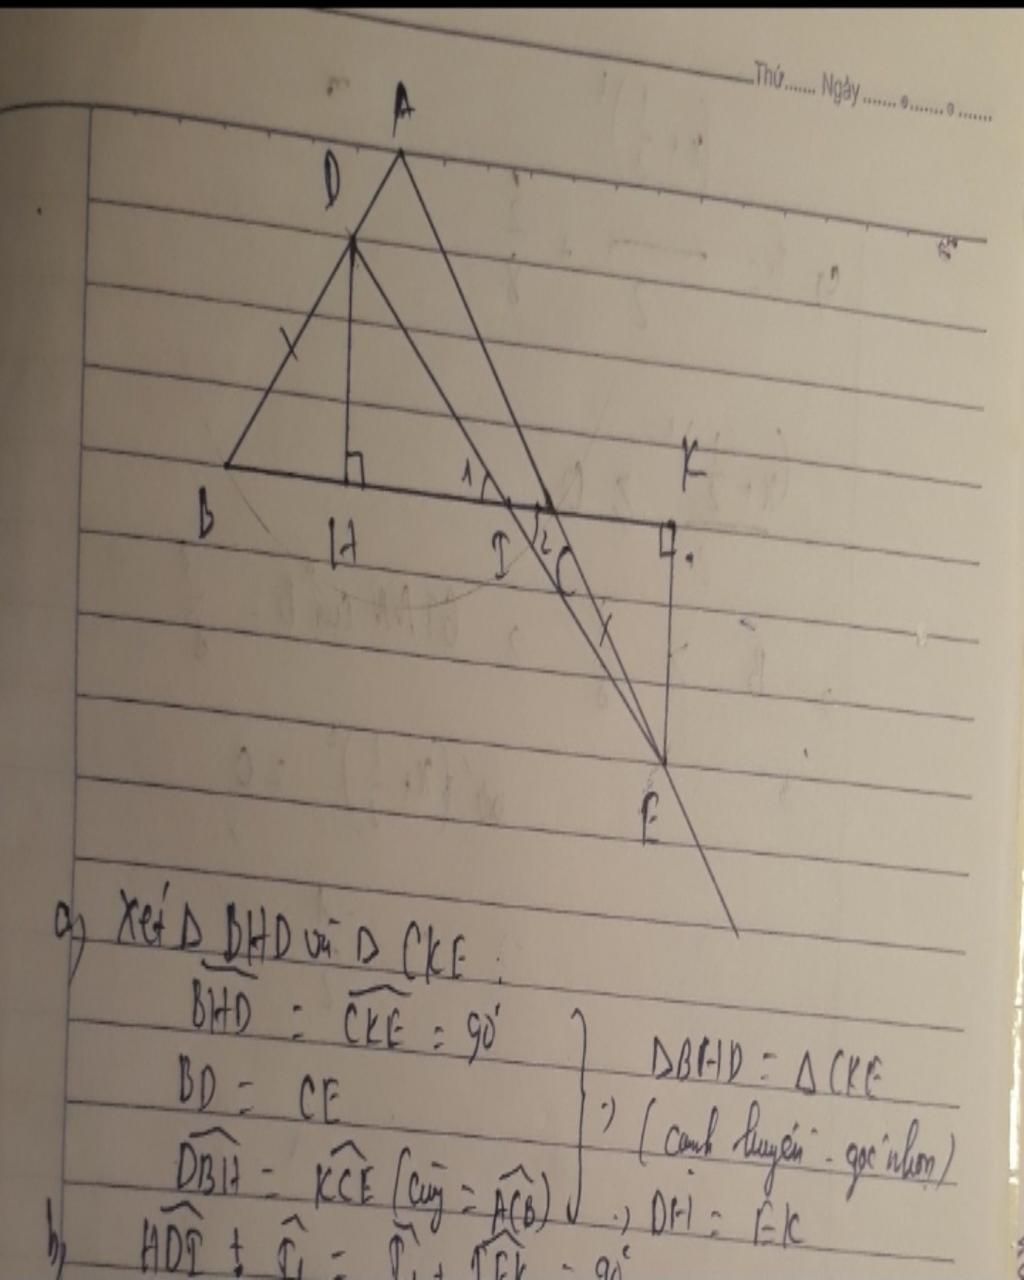 Thứ....... Ngày.......
A
D
K
1
B
H
I
2
C
E
a) Xét Δ BHD và Δ CKE :
BHD = CKE = 90°
BD = CE
DBH = KCE (cùng = ACB)
ΔBHD = ΔCKE
(cạnh huyền - góc nhọn)
DH = EK
b) HDI + I₁ =